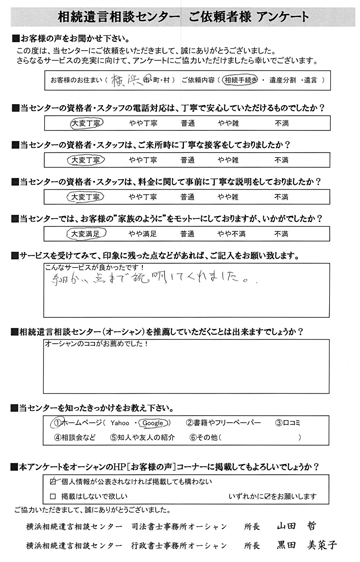 相続遺言相談センター ご依頼者様 アンケート
■お客様の声をお聞かせ下さい。
この度は、当センターにご依頼をいただきまして、誠にありがとうございました。
さらなるサービスの充実に向けて、アンケートにご協力いただけましたら幸いでございます。
お客様のお住まい ( 横浜 市・町・村 ) ご依頼内容 ( 相続手続き ・ 遺産分割 ・遺言 )
■当センターの資格者・スタッフの電話対応は、丁寧で安心していただけるものでしたか?
大変丁寧 やや丁寧 普通 やや雑 不満
■当センターの資格者・スタッフは、ご来所時に丁寧な接客をしておりましたか?
大変丁寧 やや丁寧 普通 やや雑 不満
■当センターの資格者・スタッフは、料金に関して事前に丁寧な説明をしておりましたか?
大変丁寧 やや丁寧 普通 やや雑 不満
■当センターでは、お客様の"家族のように"をモットーにしておりますが、いかがでしたか?
大変満足 やや満足 普通 やや不満 不満
■サービスを受けてみて、印象に残った点などがあれば、ご記入をお願い致します。
こんなサービスが良かったです!
細かい点まで説明してくれました。
■相続遺言相談センター(オーシャン)を推薦していただくことは出来ますでしょうか?
オーシャンのココがお薦めでした!
■当センターを知ったきっかけをお教え下さい。
①ホームページ( Yahoo ・ Google ) ②書籍やフリーペーパー ③口コミ
④相談会など ⑤知人や友人の紹介 ⑥その他( )
■本アンケートをオーシャンのHP[お客様の声]コーナーに掲載してもよろしいでしょうか?
☑ 個人情報が公表されなければ掲載しても構わない
□ 掲載はしないで欲しい いずれかに☑をお願いします
ご協力いただきまして、誠にありがとうございました。
横浜相続遺言相談センター 司法書士事務所オーシャン 所長 山田 哲
横浜相続遺言相談センター 行政書士事務所オーシャン 所長 黒田 美菜子